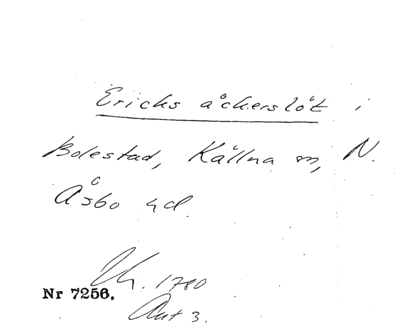 Ericks åckerslöt i
Bolestad, Källna sn, N.
Åsbo hd.
Uk. 1780
Nr 7256.
Akt 3.